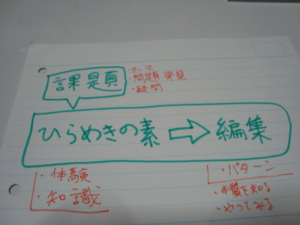 課題
・問題発見
・疑問
ひらめきの素 ⇨ 編集
・体験
・知識
・パターン
・本質を知る
・やってみる